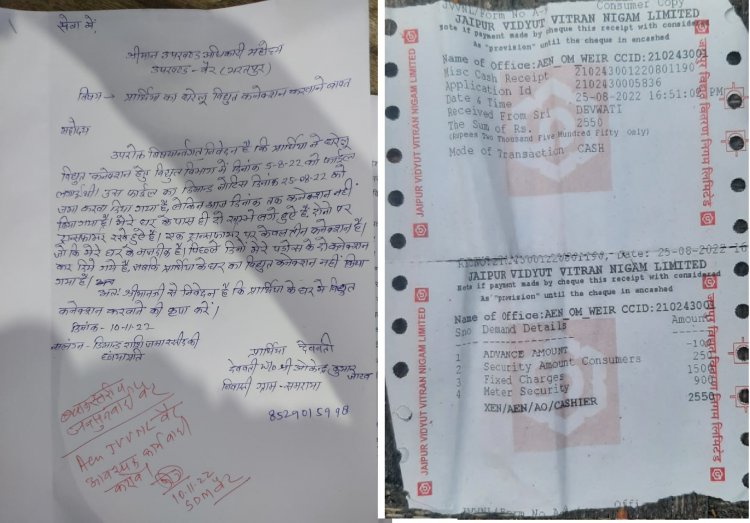 सेवा में,
श्रीमान उपखण्ड अधिकारी महोदय
उपखण्ड - वैर (भरतपुर)
विषय → प्रार्थिया का घरेलू विद्युत कनेक्शन करवाने बाबत
महोदय
उपरोक्त विषयान्तर्गत निवेदन है कि प्रार्थिया ने घरेलू
विद्युत कनेक्शन हेतु विद्युत विभाग में दिनांक 5-8-22 को फाईल
लगाई थी। उस फाईल का डिमान्ड नोटिस दिनांक 25-08-22 को
जमा करवा दिया गया है, लेकिन आज दिनांक तक कनेक्शन नहीं
दिया गया है। मेरे घर के पास ही दो खम्भे लगे हुये हैं, दोनो पर
ट्रान्सफार्मर रखे हुये है। एक ट्रान्सफार्मर पर केवल तीन कनेक्शन है।
जो कि मेरे घर के नजदीक है। पिछले दिनों मेरे पड़ोस के दो कनेक्शन
कर दिये गये है, जबकि प्रार्थिया के घर का विद्युत कनेक्शन नहीं किया
गया है।
अतः श्रीमानजी से निवेदन है कि प्रार्थिया के घर में विद्युत
कनेक्शन करवाने की कृपा करें।
दिनांक - 10-11-22
संलग्न - डिमान्ड राशि जमा रसीद की
छायाप्रति
प्रार्थिया देववती
देववती w/o श्री
निवासी ग्राम -
8529015998
Aen JVVNL वैर
आवश्यक कार्यवाही
करावें।
10.11.22
SDM वैर
JVVNL/Form No A-9 Consumer Copy
JAIPUR VIDYUT VITRAN NIGAM LIMITED
Note if payment made by cheque this receipt with considered
As "provision" until the cheque in encashed
Name of Office:AEN_OM_WEIR CCID:210243001
Misc Cash Receipt 210243001220801190
Application Id 210243005836
Date & Time 25-08-2022 16:51:09 PM
Received From Sri DEVWATI
The Sum of Rs. 2550
(Rupees Two Thousand Five Hundred Fifty only)
Mode of Transaction CASH
JAIPUR VIDYUT VITRAN NIGAM LIMITED
जयपुर विद्युत वितरण निगम लिमिटेड
Date: 25-08-2022 16
JAIPUR VIDYUT VITRAN NIGAM LIMITED
Note if payment made by cheque this receipt with considered
As "provision" until the cheque in encashed
Name of Office:AEN_OM_WEIR CCID:210243001
Sno Demand Details Amount
1 ADVANCE AMOUNT -100
2 Security Amount Consumers 250
3 Fixed Charges 1500
4 Meter Security 900
2550
XEN/AEN/AO/CASHIER
JAIPUR VIDYUT VITRAN NIGAM LIMITED
जयपुर विद्युत वितरण निगम लिमिटेड
JVVNL/Form No A-9 Offi